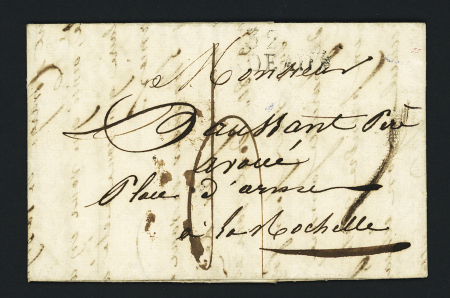 32
Monsieur
Daussant Père
avoué
Place d'armes
à la Rochelle